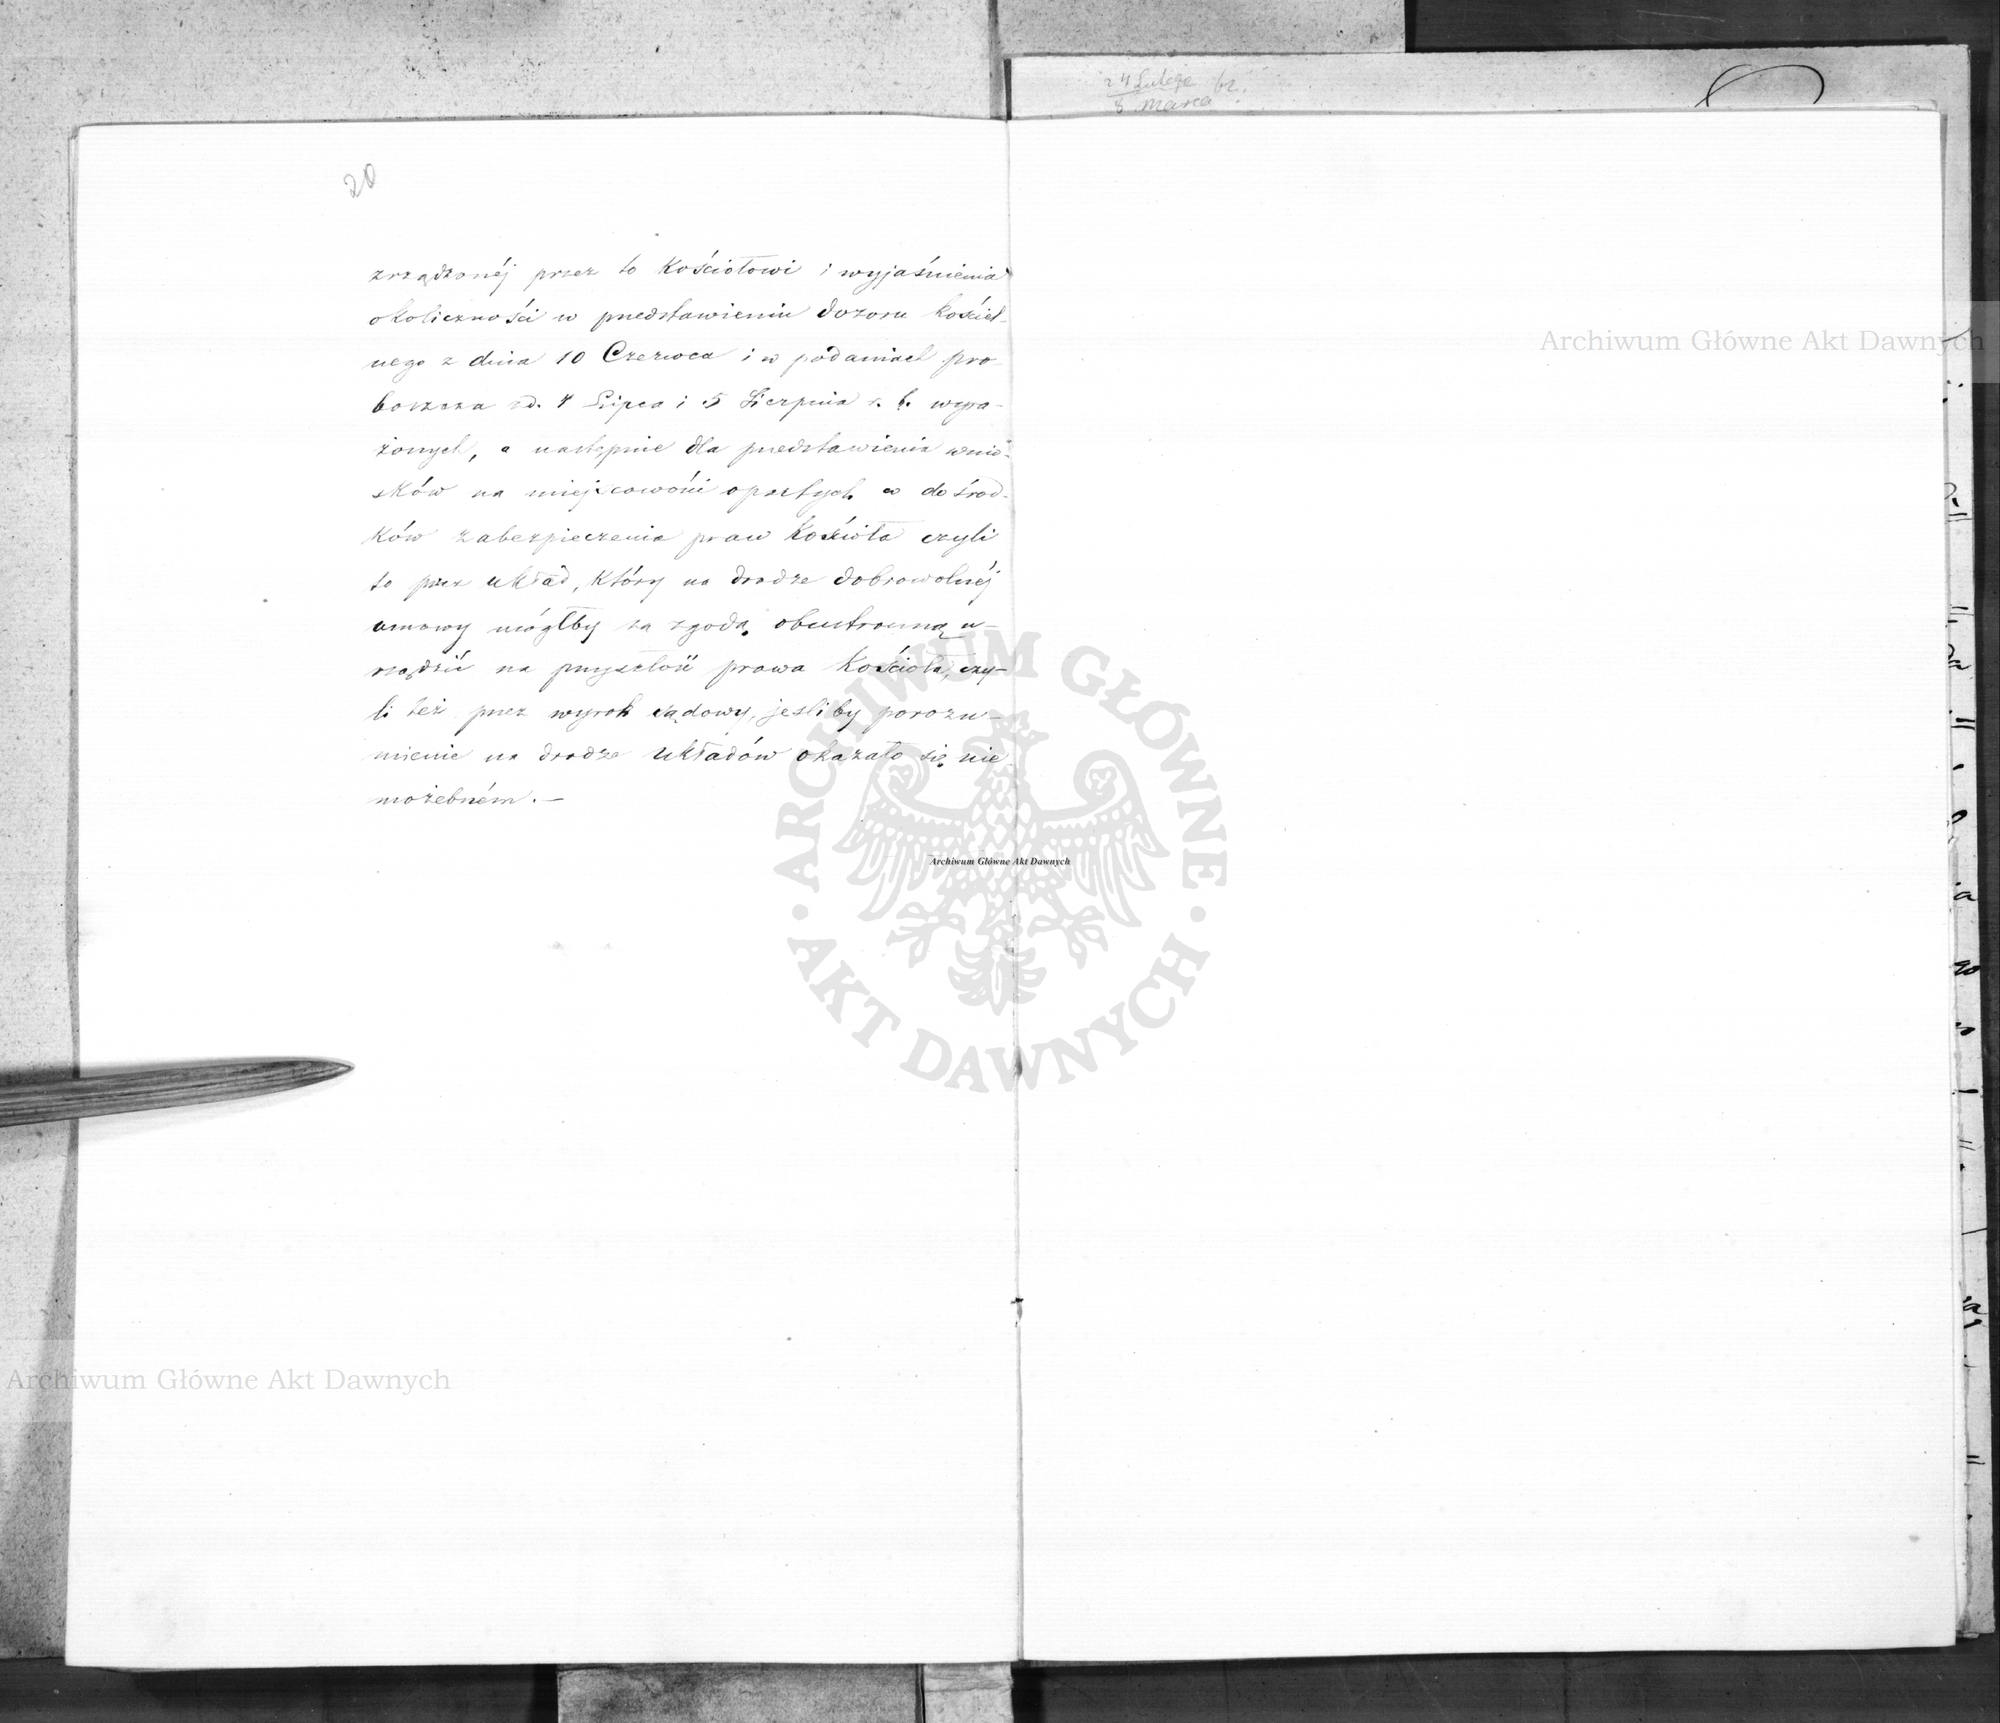 24 Lutego 62.
8 Marca
20
zrządzonéj przez to Kościołowi i wyjaśnienia
okoliczności w przedstawieniu dozoru kościel-
nego z dnia 10 Czerwca i w podaniach pro-
boszcza z d. 4 Lipca i 5 Sierpnia r. b. wyra-
żonych, a następnie dla przedstawienia wnio-
sków na miejscowości opartych co do środ-
ków zabezpieczenia praw Kościoła czyli
to przez układ, który na drodze dobrowolnéj
umowy mógłby za zgodą obustronną u-
rządzić na przyszłość prawa Kościoła, czy-
li też przez wyrok sądowy, jeśliby porozu-
mienie na drodze układów okazało się nie
możebném. —
Archiwum Główne Akt Dawnych
ARCHIWUM GŁÓWNE
AKT DAWNYCH
Archiwum Główne Akt Dawnych
Archiwum Główne Akt Dawnych